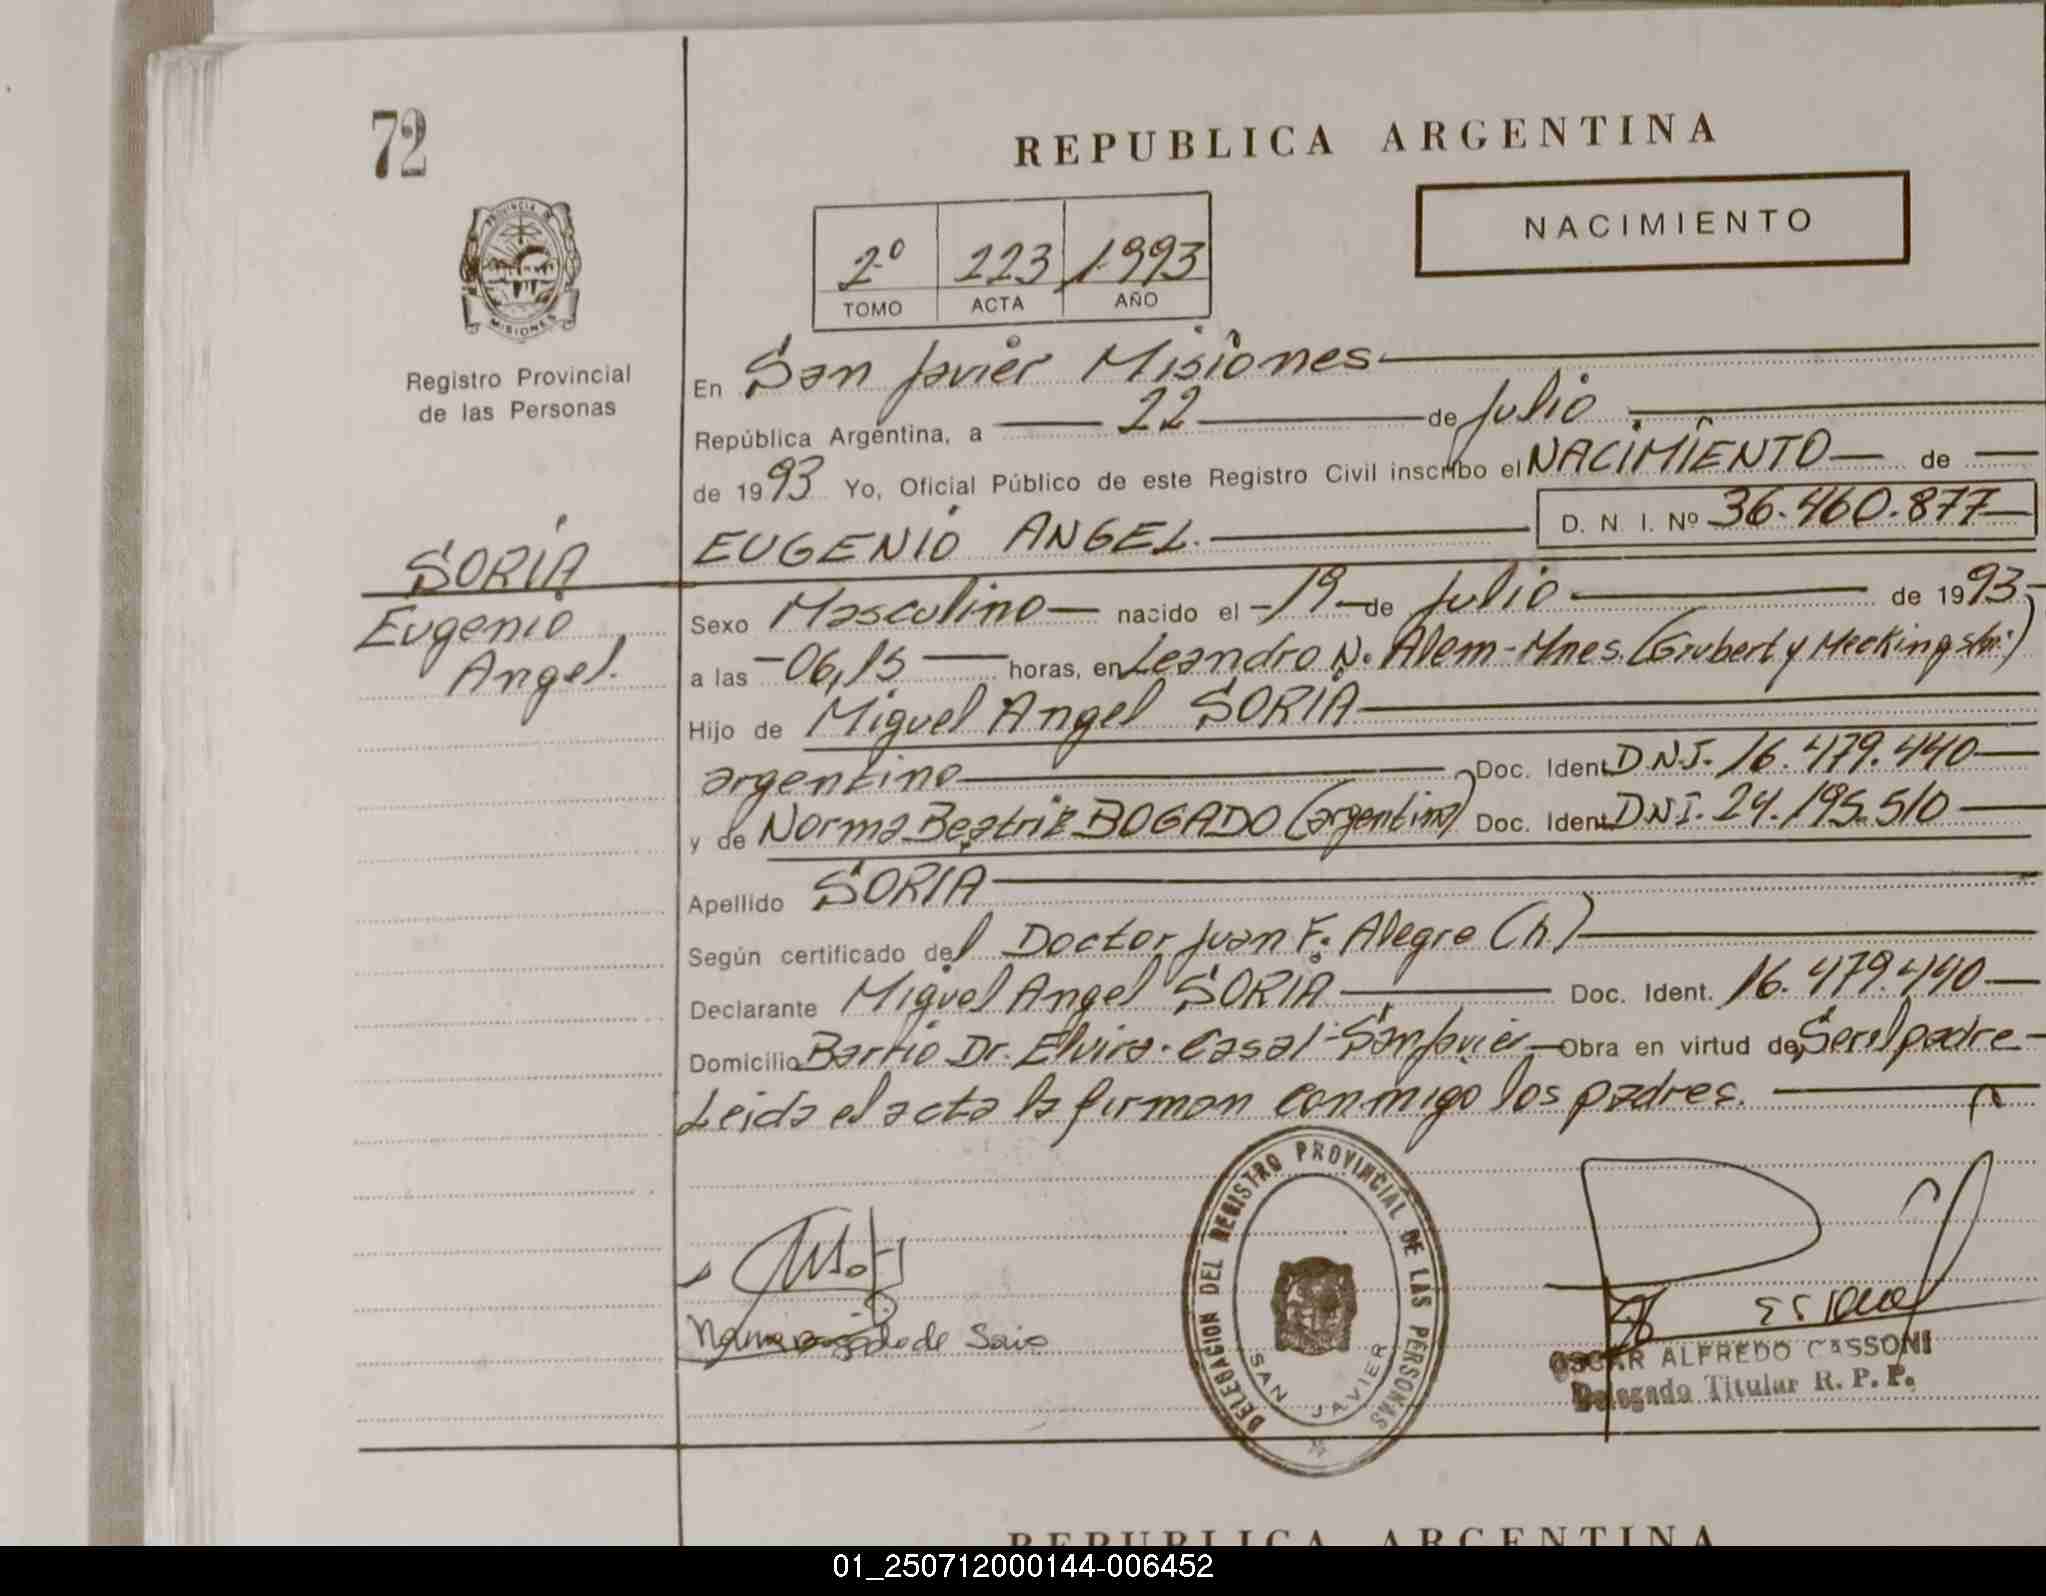 72
REPUBLICA ARGENTINA
NACIMIENTO
2º 223 1993
TOMO ACTA AÑO
PROVINCIA DE
MISIONES
Registro Provincial
de las Personas
En San Javier Misiones
República Argentina, a 22 de Julio
de 1993 Yo, Oficial Público de este Registro Civil inscribo el NACIMIENTO de
EUGENIO ANGEL. D. N. I. Nº 36.460.877
SORIA
Eugenio
Angel.
Sexo Masculino nacido el 19 de Julio de 1993
a las 06,15 horas, en Leandro N. Alem-Mnes. (Grubert y Mecking s/n:)
Hijo de Miguel Angel SORIA
argentino Doc. Ident. D.N.I. 16.479.440
y de Norma Beatriz BOGADO (argentina) Doc. Ident. D.N.I. 24.195.510
Apellido SORIA
Según certificado del Doctor Juan F. Alegre (h)
Declarante Miguel Angel SORIA Doc. Ident. 16.479.440
Domicilio Barrio Dr. Elvira Casal-San Javier Obra en virtud de Ser el padre
Leida el acta la firman conmigo los padres.
DELEGACION DEL REGISTRO PROVINCIAL DE LAS PERSONAS
SAN JAVIER
OSCAR ALFREDO CASSONI
Delegado Titular R. P. P.
REPUBLICA ARGENTINA
01_250712000144-006452